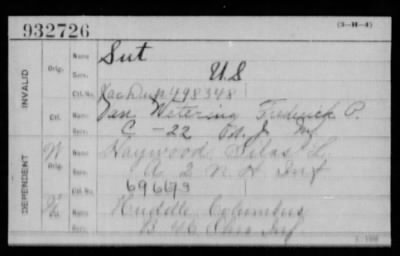 932726
(3-H-3)
INVALID
Orig.
Name
Sut
Serv.
U S
Ctf. No.
498348
Ctf.
Name
Van Wetering Frederick P.
Serv.
C - 22 Ind. Inf
DEPENDENT
W
Orig.
Name
Haywood Silas L.
Serv.
A 2 N H Inf
Ctf. No.
696693
Name
Huddle Columbus
Serv.
B 46 Ohio Inf